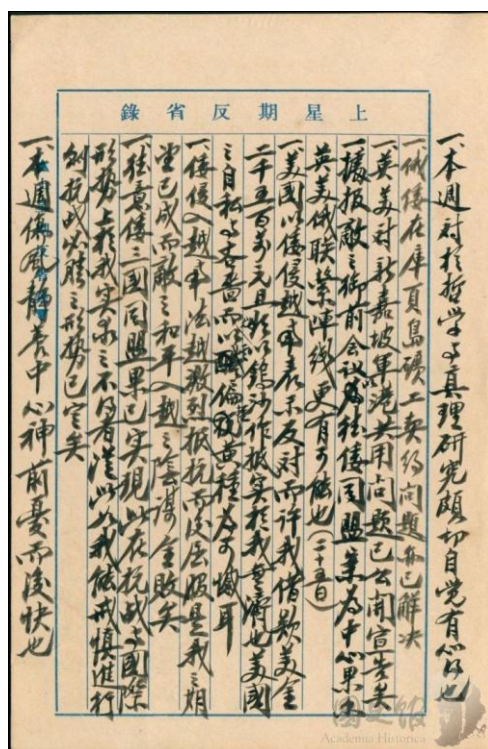 上星期反省錄
一、本週對於哲學與真理研究頗切自覺有心得也
一、俄倭在庫頁島礦工契約問題亦已解決
一、英美對新加坡軍港共用問題已公開宣告矣
一、據報敵之御前會議為德倭同盟案為中心果爾
英美俄聯繫陣線更有可能也(二十五日)
一、美國以倭侵越事表示反對而許我借款美金
二千五百萬元且以鎢砂作抵實於我無濟也美國
之自私與吝嗇而以黃種為可慨耳
一、倭侵入越事法越激烈抵抗而後屈服是我之期
望已成而敵之和平入越之陰謀全敗矣
一、德意倭三國同盟果已實現此在抗戰與國際
形勢上於我實求之不得者從此我能戒慎進行
則抗戰必勝之形勢已定矣
一、本週傷風靜養中心神前憂而後快也
國史館
Academia Historica